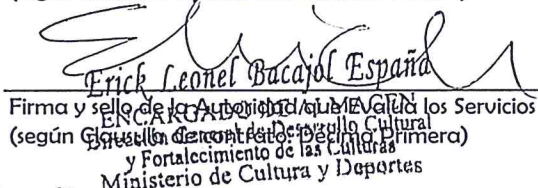 Erick Leonel Bacajol España
Firma y sello de la Autoridad que Evalúa los Servicios
ENCARGADO DE ALMACEN
(según Clausula de contrato: Decima Primera)
Dirección General de Desarrollo Cultural
y Fortalecimiento de las Culturas
Ministerio de Cultura y Deportes